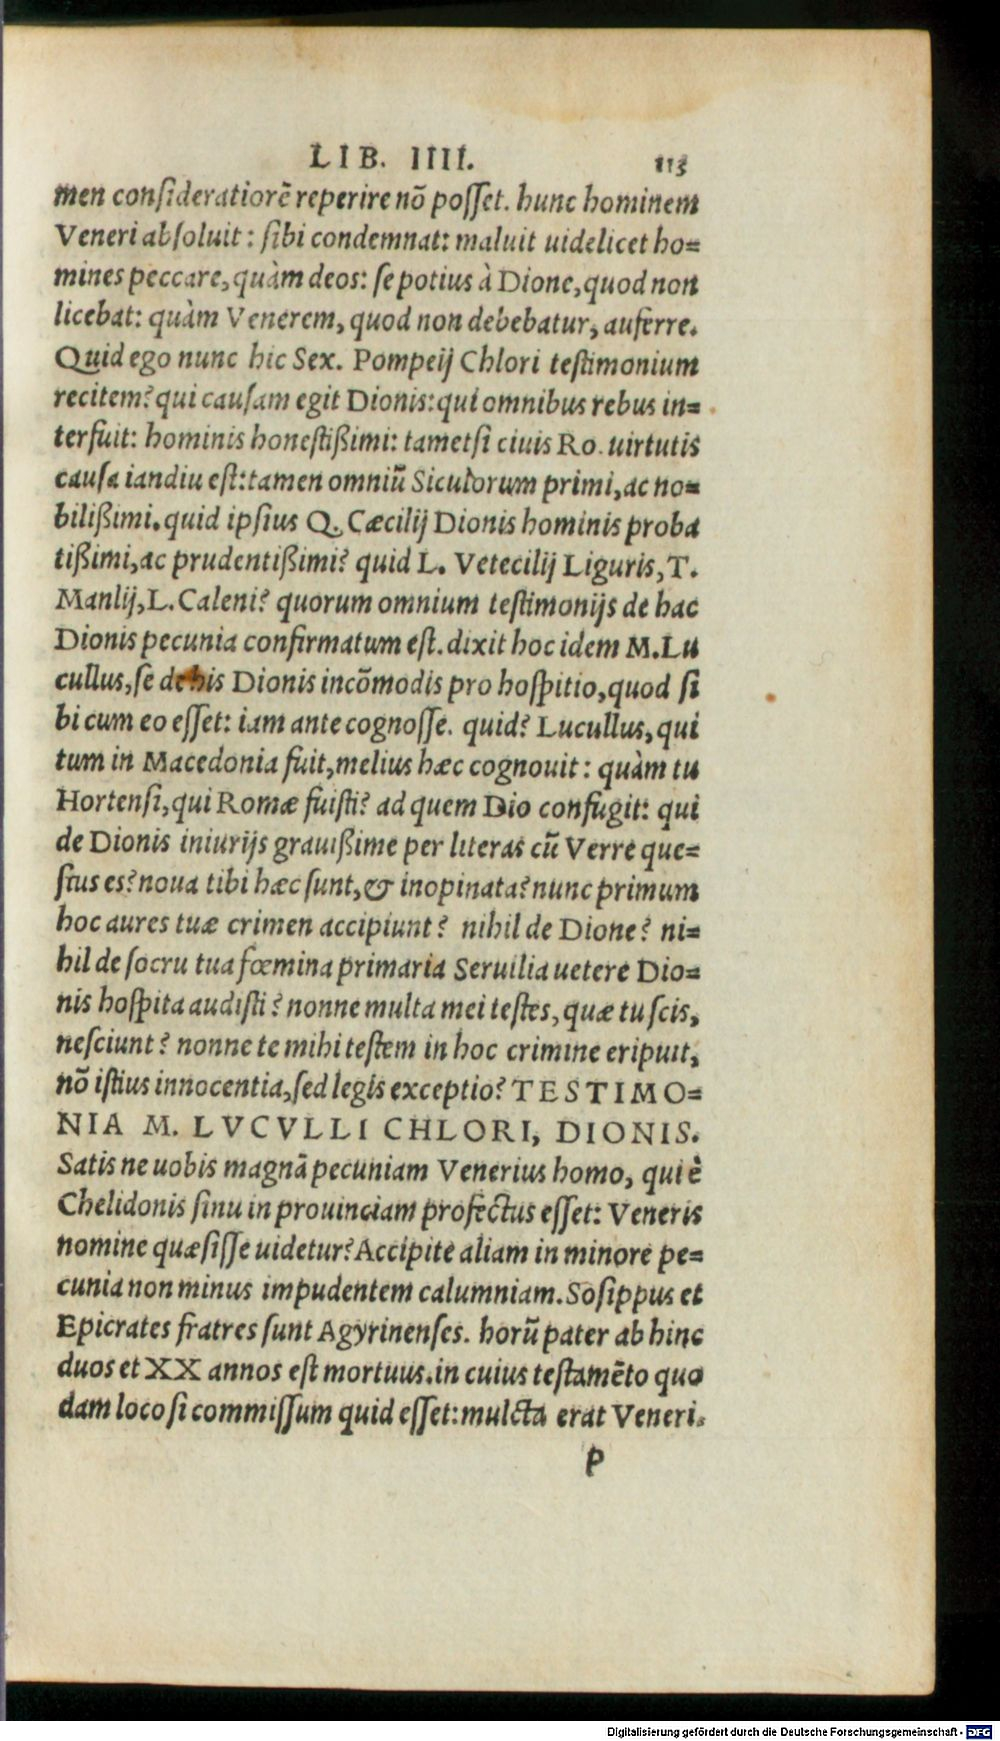 LIB. IIII. 113
men consideratiorē reperire nō posset. hunc hominem
Veneri absoluit: sibi condemnat: maluit uidelicet ho=
mines peccare, quàm deos: se potius à Dione, quod non
licebat: quàm Venerem, quod non debebatur, auferre.
Quid ego nunc hic Sex. Pompeij Chlori testimonium
recitem? qui causam egit Dionis: qui omnibus rebus in=
terfuit: hominis honestißimi: tametsi ciuis Ro. uirtutis
causa iandiu est: tamen omniū Siculorum primi, ac no=
bilißimi. quid ipsius Q. Cæcilij Dionis hominis proba
tißimi, ac prudentißimi? quid L. Vetecilij Liguris, T.
Manlij, L. Caleni? quorum omnium testimonijs de hac
Dionis pecunia confirmatum est. dixit hoc idem M. Lu
cullus, se de his Dionis incōmodis pro hospitio, quod si
bi cum eo esset: iam ante cognosse. quid? Lucullus, qui
tum in Macedonia fuit, melius hæc cognouit: quàm tu
Hortensi, qui Romæ fuisti? ad quem Dio confugit: qui
de Dionis iniurijs grauißime per literas cū Verre que=
stus es? noua tibi hæc sunt, & inopinata? nunc primum
hoc aures tuæ crimen accipiunt? nihil de Dione? ni=
hil de socru tua fœmina primaria Seruilia uetere Dio=
nis hospita audisti? nonne multa mei testes, quæ tu scis,
nesciunt? nonne te mihi testem in hoc crimine eripuit,
nō istius innocentia, sed legis exceptio? TESTIMO=
NIA M. LVCVLLI CHLORI, DIONIS.
Satis ne uobis magnā pecuniam Venerius homo, qui è
Chelidonis sinu in prouinciam profectus esset: Veneris
nomine quæsisse uidetur? Accipite aliam in minore pe=
cunia non minus impudentem calumniam. Sosippus et
Epicrates fratres sunt Agyrinenses. horū pater ab hinc
duos et XX annos est mortuus. in cuius testamēto quo
dam loco si commissum quid esset: mulcta erat Veneri.
P
Digitalisierung gefördert durch die Deutsche Forschungsgemeinschaft - DFG